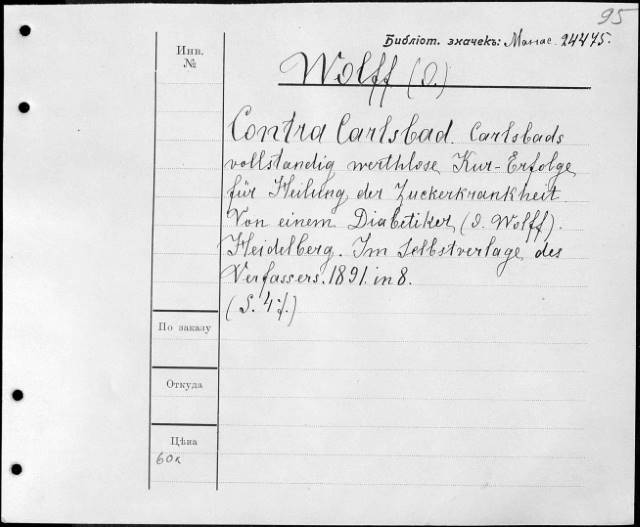 95
Библіот. значекъ: Манас. 24475.
Инв.
№
Wolff (I.)
Contra Carlsbad. Carlsbads
vollständig werthlose Kur-Erfolge
für Heilung der Zuckerkrankheit.
Von einem Diabetiker (I. Wolff).
Heidelberg. Im Selbstverlage des
Verfassers. 1891. in 8.
(S. 4
По заказу
Откуда
Цѣна
60к